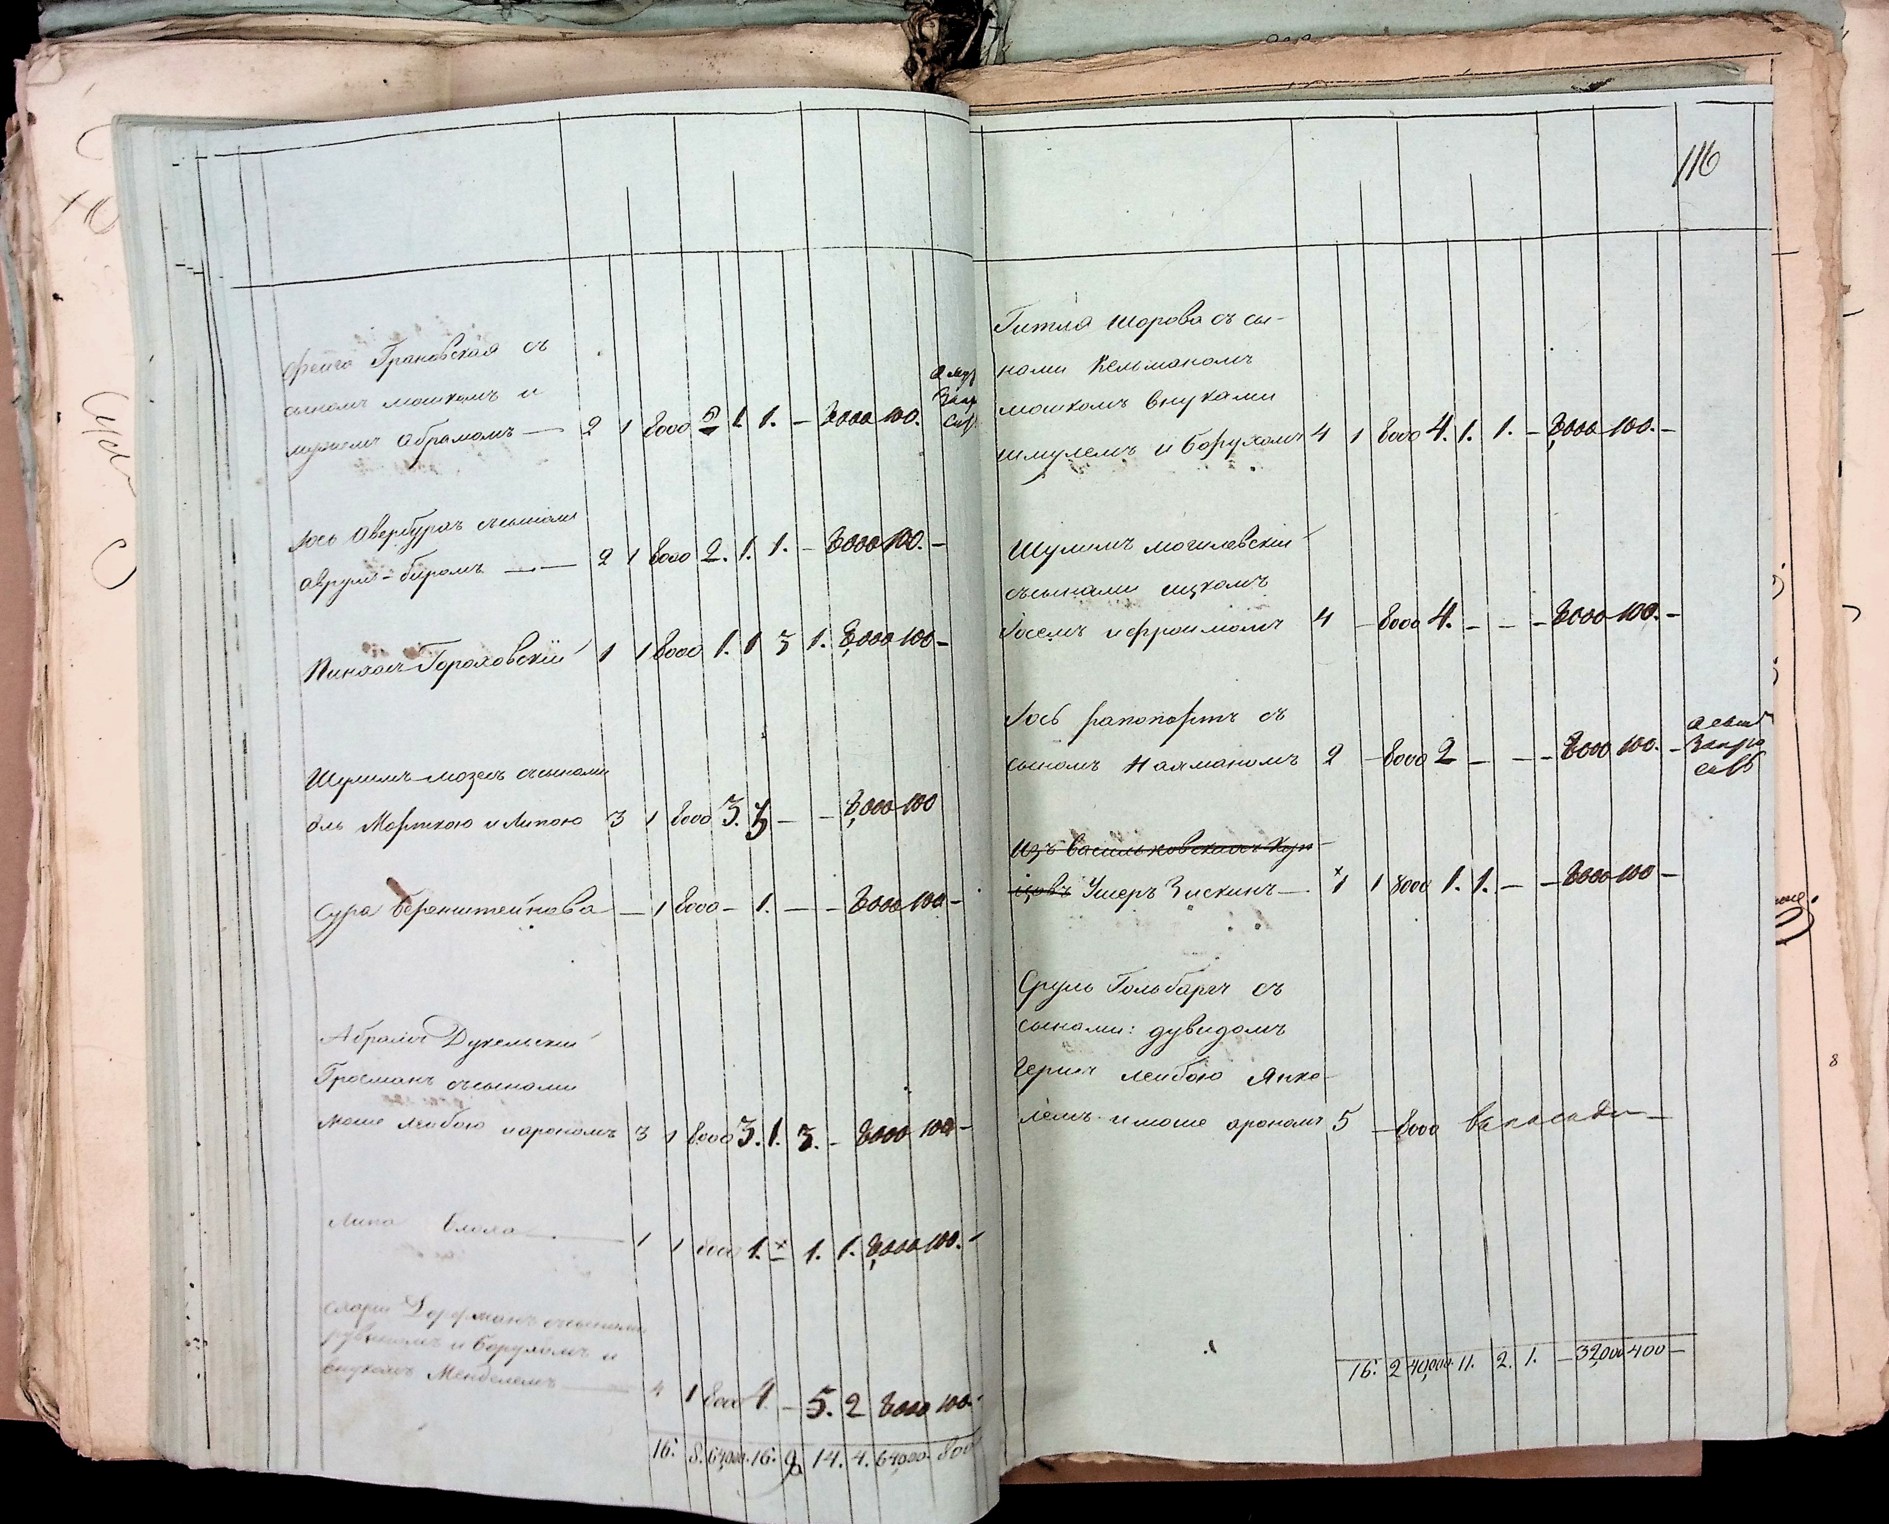 Фейга Грановская съ
сыномъ мошкомъ и
мужемъ Абрамомъ — 2 1 8000 2 1. 1. — 8000 100.
Іось Авербухъ съ сыномъ
Аврумъ-беромъ — — 2 1 8000 2. 1. 1. — 8000 100. —
Пинхасъ Гороховскій 1 1 8000 1. 1 3 1. 8,000 100 —
Шулимъ мозесъ съ сынами
Морткою и Липою 3 1 8000 3. — — 8,000 100
Сура Беренштейнова — 1 8000 — 1. — — 8000 100 —
Абрамъ Духельскій
Гросманъ съ сынами
моше лейбою и арономъ 3 1 8000 3. 1. 3. — 8000 100 —
Липа 1 1 8000 1. × 1. 1. 8,000 100. —
Дорфманъ съ сынами
рувиномъ и Борухомъ и
внукомъ Менделемъ — 4 1 8000 4 — 5. 2 8000 100. —
16. 8. 64,000. 16. 9 14. 4. 64,000. 800
116
Гитля Шорова съ сы-
нами Кельманомъ
мошкомъ внуками
шмулемъ и Борухомъ 4 1 8000 4. 1. 1. — 8,000 100. —
Шулимъ могилевскій
съ сынами ицкомъ
Іосемъ и ефроимомъ 4 — 8000 4. — — — 8000 100. —
Іось рапопортъ съ
сыномъ Нахманомъ 2 — 8000 2 — — — 8000 100. —
Изъ Васильковскихъ Куп-
цовъ Умеръ Зискинъ — × 1 1 8000 1. 1. — — 8000 100 —
Сруль Гольбархъ съ
сынами: дувидомъ
Герш лейбою Янке-
лемъ и моше арономъ 5 — 8000
16. 2 40,000. 11. 2. 1. — 32,000 400 —
8